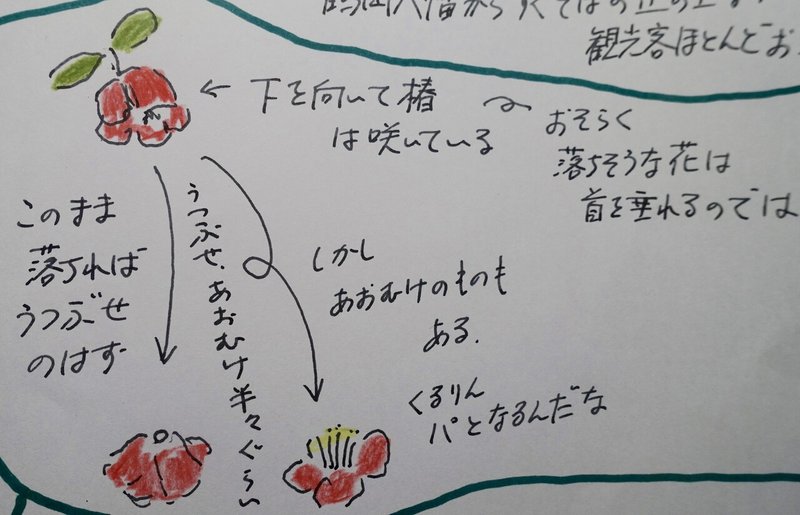 観光客ほとんどお
← 下を向いて椿
は咲いている
おそらく
落ちそうな花は
首を垂れるのでは
このまま
落ちれば
うつぶせ
のはず
うつぶせ、あおむけ半々ぐらい
しかし
あおむけのものも
ある.
くるりん
パとなるんだな